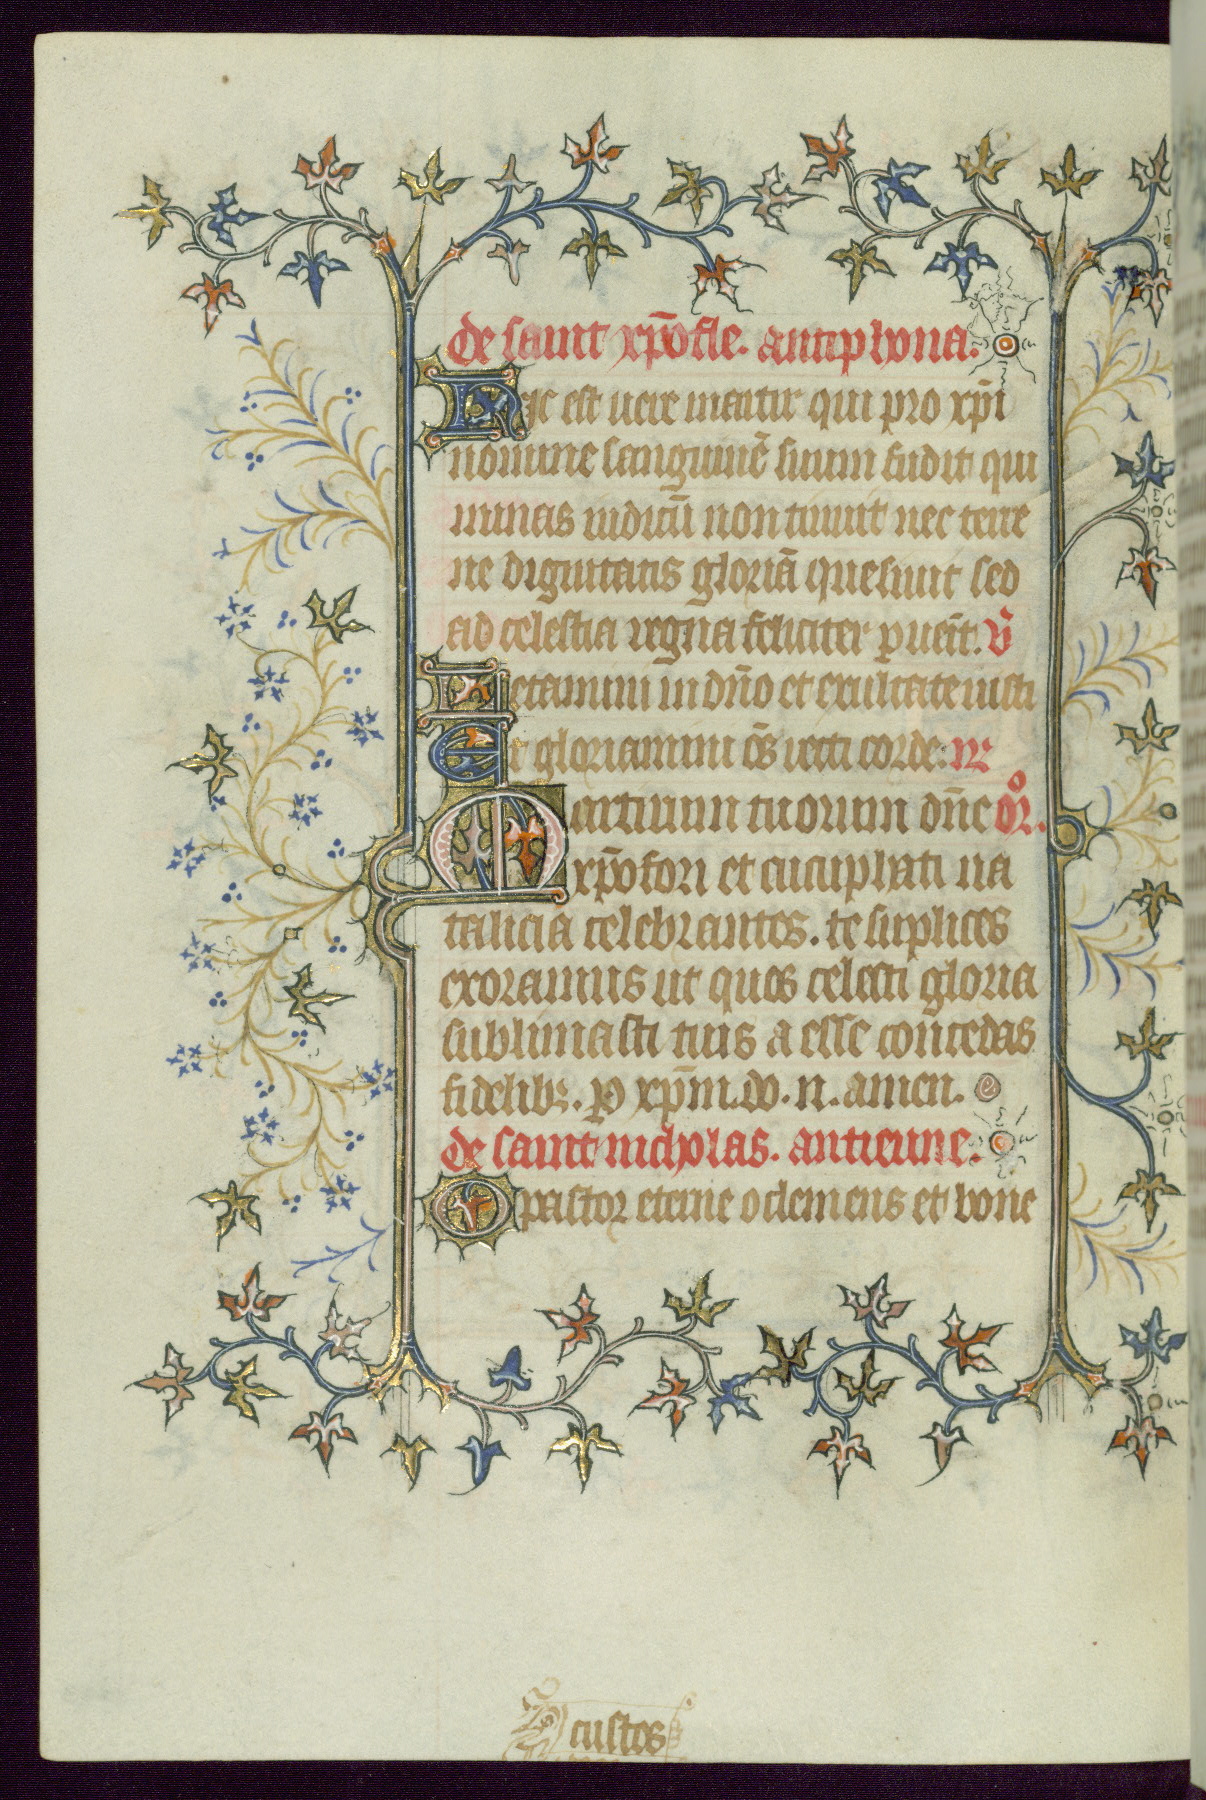 de saint xp̄ofle. antiphona.
Hic est uere martir qui pro xp̄i
nomine sanguinē suum fudit qui
minas iudicū non timuit nec terre
ne dignitatis gloriā quesiuit sed
ad celestia regna feliciter ꝑueīt. v̄
Letamini in dn̄o et exultate iusti
Et gloriamini om̄s recti corde.
Martirum tuorum dn̄e or̄.
xp̄ofori et cucuphati na
talicia celebrantes. te suplices
exoramus ut quos celesti gloria
sublimasti tuis a esse concedas
fidelibꝫ. ꝑ xp̄m. do. n. amen.
de saint nicholas. antienne.
O pastor eterne o clemens et bone
custos